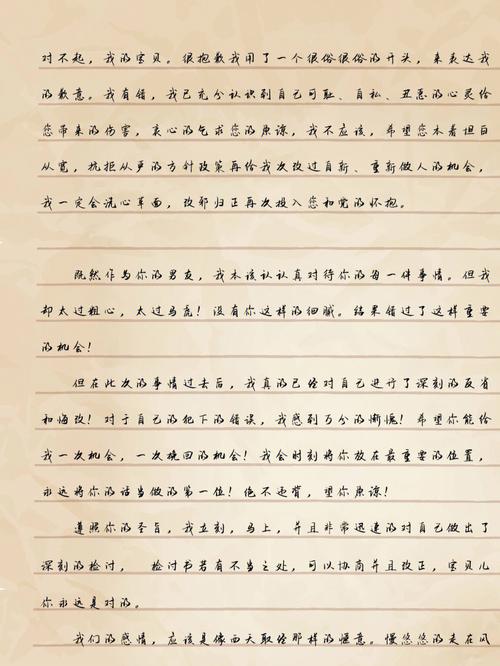 对不起，我的宝贝。很抱歉我用了一个很俗很俗的开头，来表达我
的歉意。我有错，我已充分认识到自己可耻、自私、丑恶的心灵给
您带来的伤害，衷心的乞求您的原谅，我不应该，希望您本着坦白
从宽，抗拒从更的方针政策再给我次改过自新、重新做人的机会，
我一定会洗心革面，改邪归正再次投入您和党的怀抱。
既然作为你的男友，我本该认认真对待你的每一件事情。但我
却太过粗心，太过马虎！没有你这样的细腻。结果错过了这样重要
的机会！
但在此次的事情过去后，我真的已经对自己进行了深刻的反省
和悔改！对于自己的犯下的错误，我感到万分的惭愧！希望你能给
我一次机会，一次挽回的机会！我会时刻将你放在最重要的位置，
永远将你的话当做的第一位！绝不违背，望你原谅！
遵照你的圣旨，我立刻，马上，并且非常迅速的对自己做出了
深刻的检讨， 检讨书若有不当之处，可以协商并且改正，宝贝儿
你永远是对的。
我们的感情，应该是像西天取经那样的惬意。慢悠悠的走在风